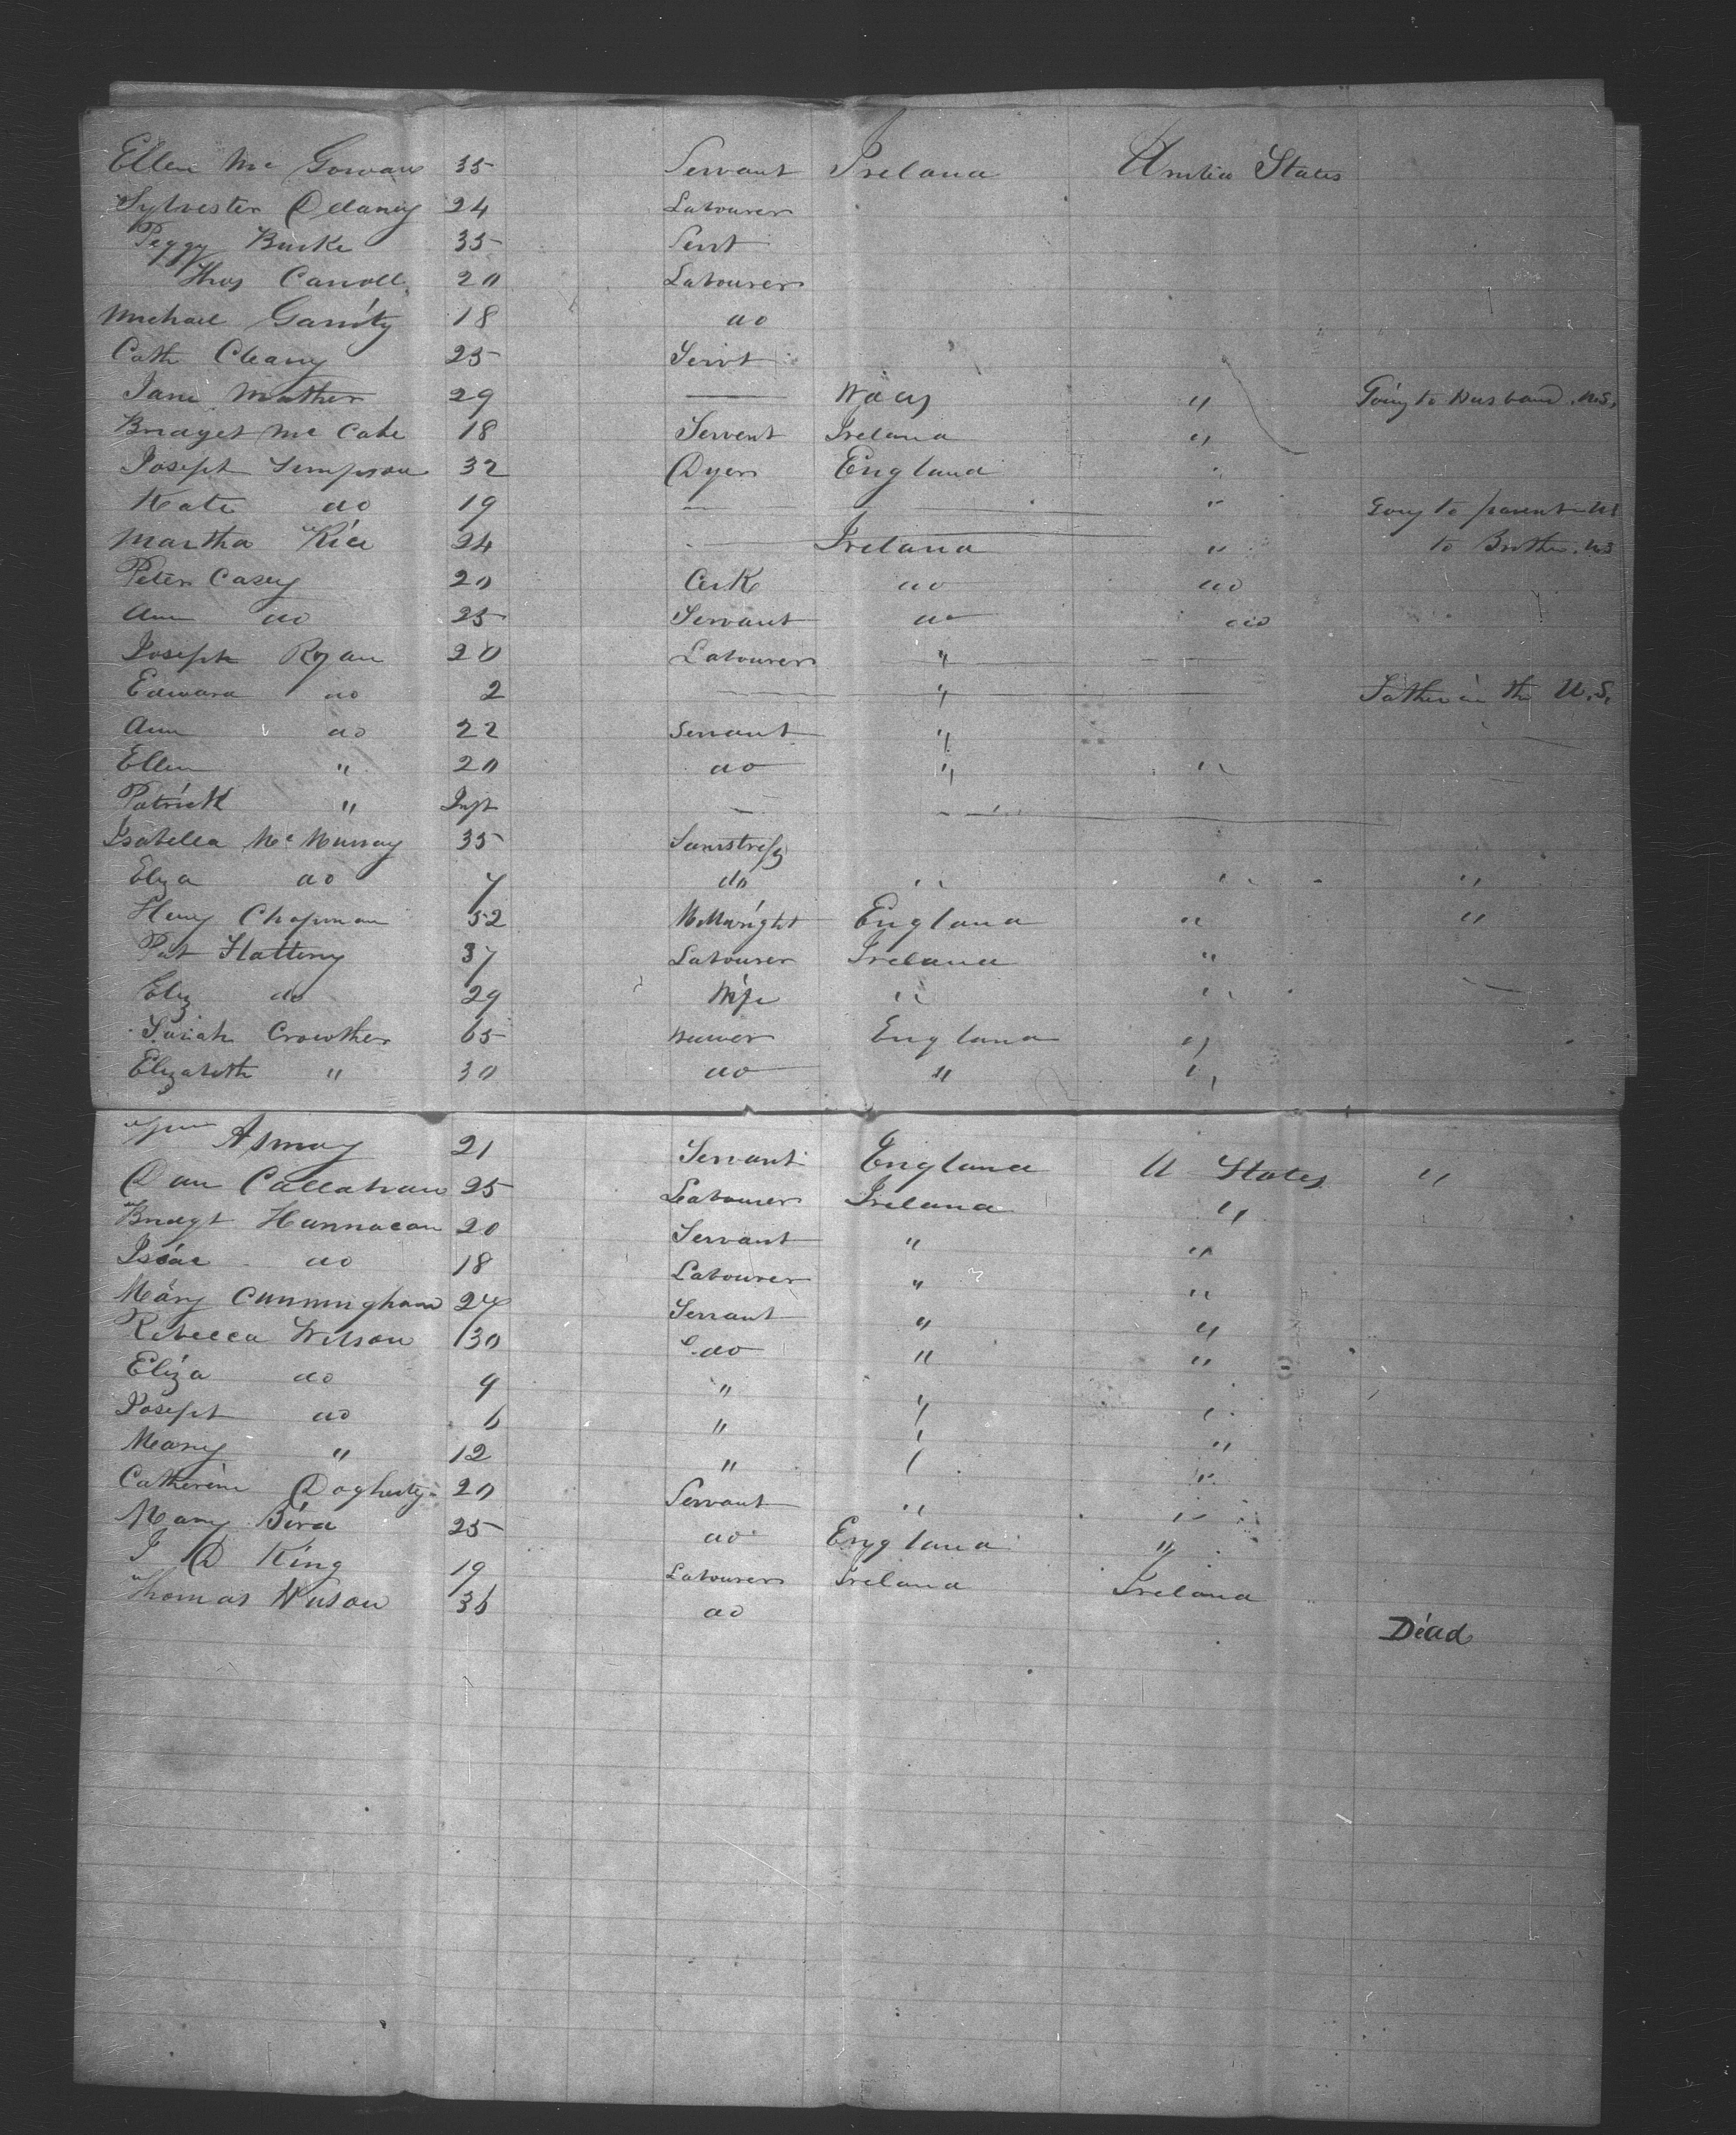 Ellen Mc Gowan 35 Servant Ireland United States
Sylvester Delaney 24 Labourer
Peggy Burke 35 Servt
Thos Carroll 20 Labourer
Michael Garrity 18 do
Cath Cleary 25 Servt
Jane Mather 29 — Wales " Going to Husband. U.S.
Bridget Mc Cabe 18 Servent Ireland "
Joseph Simpson 32 Dyer England "
Kate do 19 — " Going to parents U.S
Martha Rice 24 - Ireland " to Brother. U.S
Peter Casey 20 Clerk do do
Ann do 25 Servant do do
Joseph Ryan 20 Labourer "
Edward do 2 " Father in the U.S.
Ann do 22 Servant "
Ellen " 20 do " "
Patrick " Inft — "
Isabella Mc Murray 35 Samstress
Eliza do 7 do " " "
Henry Chapman 52 Millwright England " "
Pat Slattery 37 Labourer Ireland "
Eliz do 29 Wife " "
Sarah Crowther 65 Weaver England "
Elizabeth " 30 do " "
Asmay 21 Servant England U States "
Dan Callahan 25 Labourer Ireland "
Bridgt Hannacan 20 Servant " "
Isaac do 18 Labourer " "
Mary Cunningham 24 Servant " "
Rebecca Wilson 30 do " "
Eliza do 9 " " "
Joseph do 6 " " "
Mary " 12 " " "
Catherine Dogherty 20 Servant " "
Mary Bird 25 do England "
J D King 19 Labourer Ireland Ireland
Thomas 36 do Dead